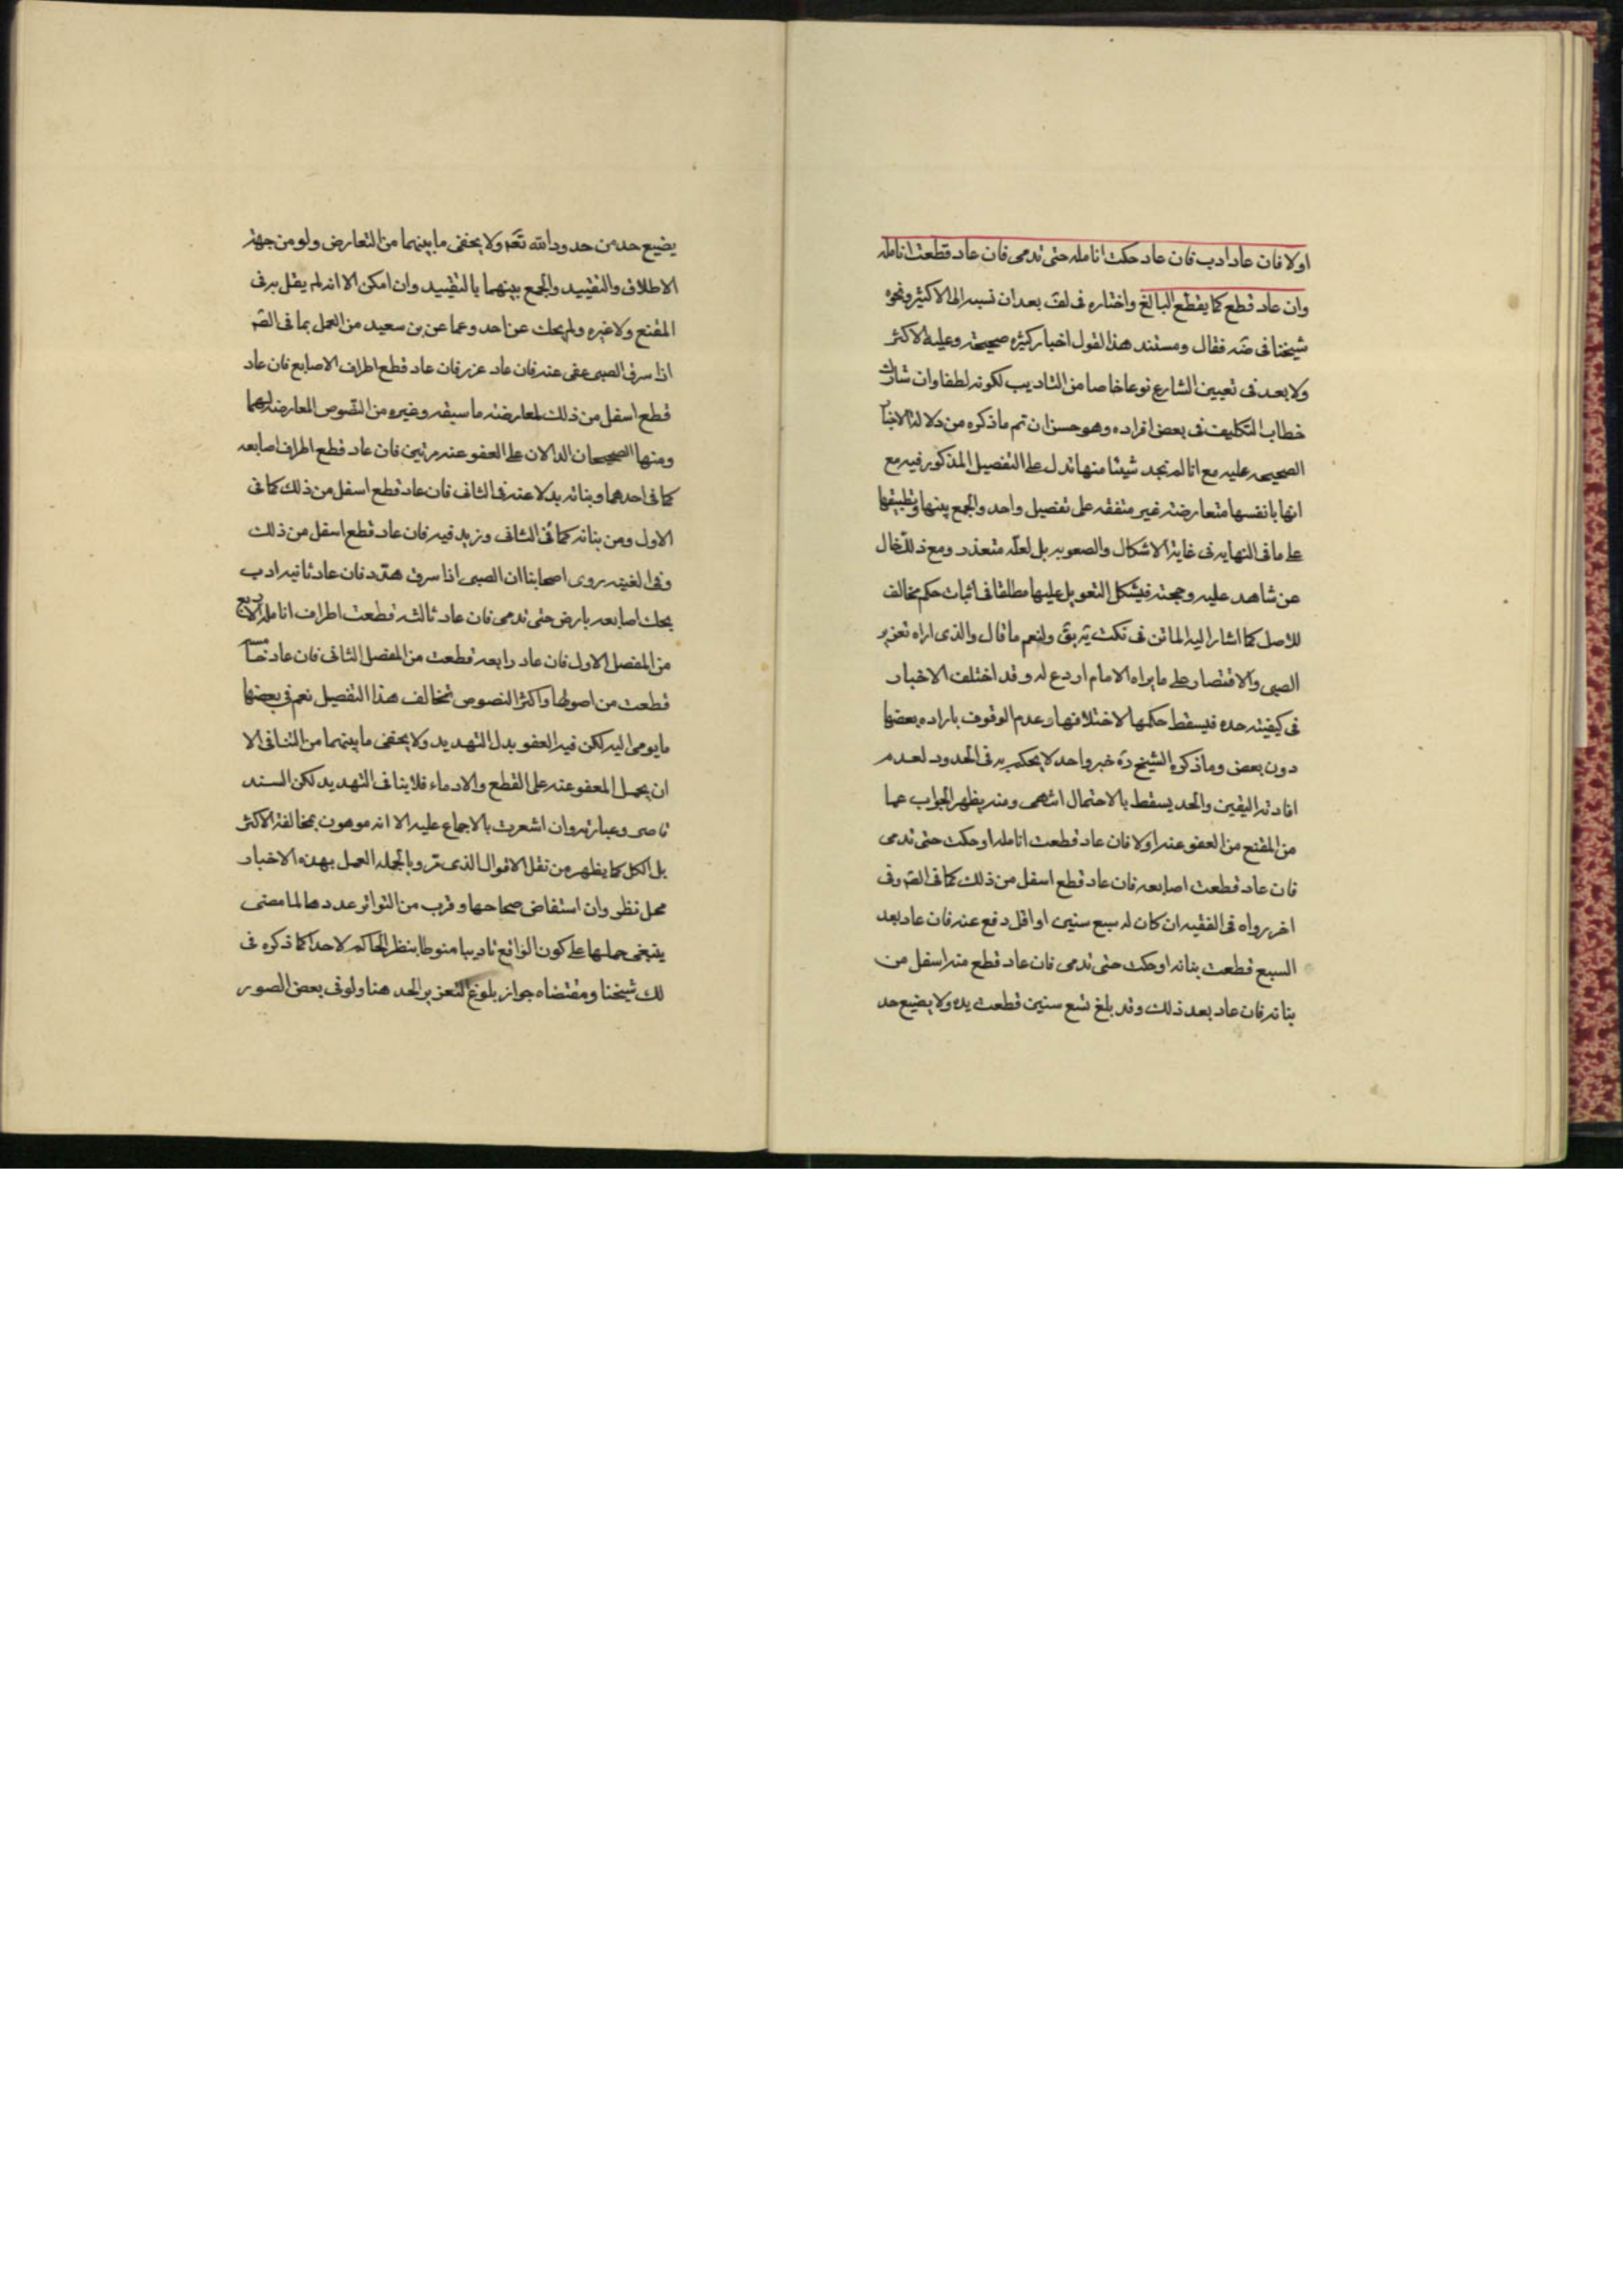 اولا فان عاد ادب فان عاد حكت انامله حتى تدمى فان عاد قطعت انامله
وان عاد قطع كما يقطع البالغ واختاره فى لف بعد ان نسبه الى الاكثر ونحوه
شيخنا فى ضه فقال ومستند هذا القول اخبار كثيره صحيحة وعليه الاكثر
ولا بعد فى تعيين الشارع نوعا خاصا من التاديب لكونه لطفا وان شارك
خطاب التكليف فى بعض افراده وهو حسن ان تم ما ذكره من دلالة الاخبار
الصحيحه عليه مع انا لم نجد شيئا منها تدل على التفصيل المذكور فيه مع
انها بانفسها متعارضة غير متفقه على تفصيل واحد والجمع بينها وتطبيقها
على ما فى النهايه فى غاية الاشكال والصعوبه بل لعله متعذر ومع ذلك خال
عن شاهد عليه وحجة فيشكل التعويل عليها مطلقا فى اثبات حكم مخالف
للاصل كما اشار اليه الماتن فى نكت يه بق ولنعم ما قال والذى اراه تعزير
الصبى والاقتصار على ما يراه الامام اردع له وقد اختلفت الاخبار
فى كيفية حده فيسقط حكمها لاختلافها وعدم الوقوف بارادة بعضها
دون بعض وما ذكره الشيخ ره خبر واحد لا يحكم به فى الحدود لعدم
افادته اليقين والحد يسقط بالاحتمال انتهى ومنه يظهر الجواب عما
من المقنع من العفو عنه اولا فان عاد قطعت انامله او حكت حتى تدمى
فان عاد قطعت اصابعه فان عاد قطع اسفل من ذلك كما فى الصه وفى
اخر رواه فى الفقيه ان كان له سبع سنين او اقل دفع عنه فان عاد بعد
السبع قطعت بنانه او حكت حتى تدمى فان عاد قطع منه اسفل من
بنانه فان عاد بعد ذلك وقد بلغ تسع سنين قطعت يده ولا يضيع حد
يضيع حد من حدود الله تعه ولا يخفى ما بينهما من التعارض ولو من جهة
الاطلاق والتقييد والجمع بينهما بالتقييد وان امكن الا انه لم يقل به فى
المقنع ولا غيره ولم يحك عن احد وعما عن بن سعيد من العمل بما فى الصه
اذا سرق الصبى عفى عنه فان عاد عزر فان عاد قطع اطراف الاصابع فان عاد
قطع اسفل من ذلك لمعارضته ما سبقه وغيره من النصوص المعارضه لهما
ومنها الصحيحان الدالان على العفو عنه مرتين فان عاد قطع اطراف اصابعه
كما فى احدهما وبنانه بدلا عنه فى الثانى فان عاد قطع اسفل من ذلك كما فى
الاول ومن بنانه كما فى الثانى وزيد فيه فان عاد قطع اسفل من ذلك
وفى الغنيه روى اصحابنا ان الصبى اذا سرق هدد فان عاد ثانيه ادب
بحك اصابعه بارض حتى تدمى فان عاد ثالثه قطعت اطراف انامله الاربع
من المفصل الاول فان عاد رابعه قطعت من المفصل الثانى فان عاد خامسه
قطعت من اصولها واكثر النصوص تخالف هذا التفصيل نعم فى بعضها
ما يومى اليه لكن فيه العفو بدل التهديد ولا يخفى ما بينهما من التنافى الا
ان يحمل المعفو عنه على القطع والادماء فلا ينافى التهديد لكن السند
قاصر وعبارته وان اشعرت بالاجماع عليه الا انه موهون بمخالفة الاكثر
بل الكل كما يظهر من نقل الاقوال الذى مر وبالجمله العمل بهذه الاخبار
محل نظر وان استفاض صحاحها وقرب من التواتر عددها لما مضى
ينبغى حملها على كون الواقع تاديبا منوطا بنظر الحاكم لاحدا كما ذكره فى
لك شيخنا ومقتضاه جواز بلوغ التعزير الحد هنا ولو فى بعض الصور